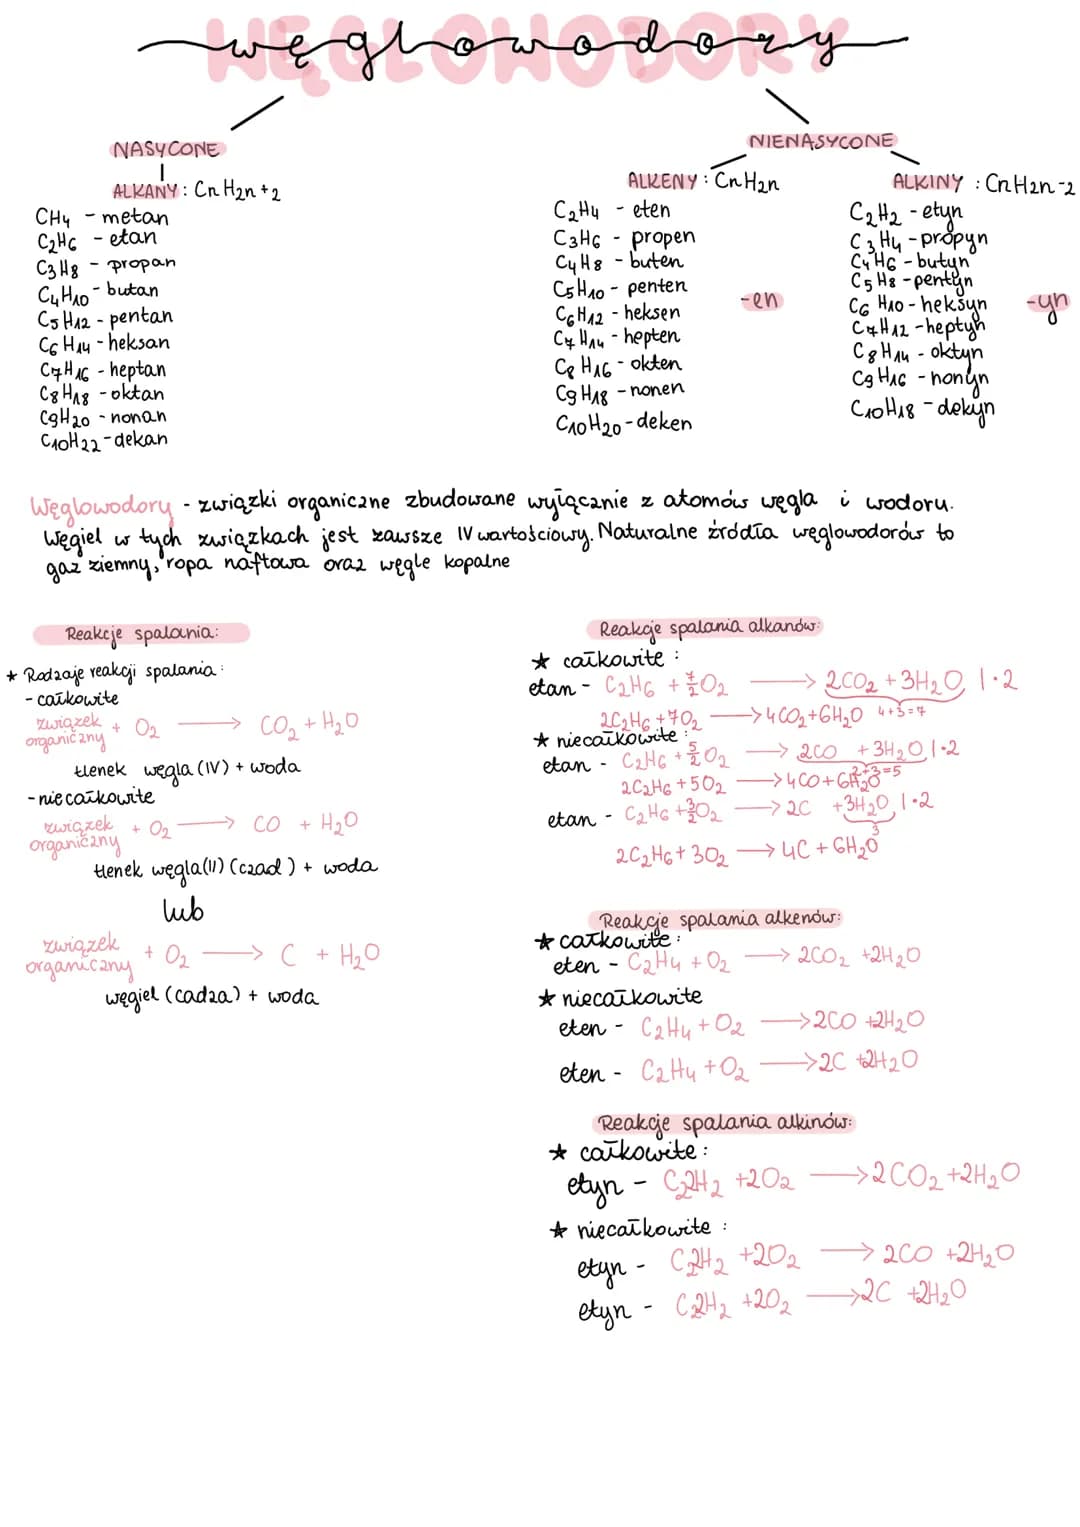 węglowodory
WĘGLOWODORY
NASYCONE
ALKANY : CnH2n+2
CH4 - metan
C2H6 - etan
C3H8 - propan
C4H10 - butan
C5H12 - pentan
C6H14 - heksan
C7H16 - heptan
C8H18 - oktan
C9H20 - nonan
C10H22 - dekan
NIENASYCONE
ALKENY : CnH2n
C2H4 - eten
C3H6 - propen
C4H8 - buten
C5H10 - penten
C6H12 - heksen
C7H14 - hepten
C8H16 - okten
C9H18 - nonen
C10H20 - deken
-en
ALKINY : CnH2n-2
C2H2 - etyn
C3H4 - propyn
C4H6 - butyn
C5H8 - pentyn
C6H10 - heksyn
C7H12 - heptyn
C8H14 - oktyn
C9H16 - nonyn
C10H18 - dekyn
-yn
Węglowodory - związki organiczne zbudowane wyłącznie z atomów węgla i wodoru.
Węgiel w tych związkach jest zawsze IV wartościowy. Naturalne źródła węglowodorów to
gaz ziemny, ropa naftowa oraz węgle kopalne
Reakcje spalania:
* Rodzaje reakcji spalania:
- całkowite
związek organiczny + O2 → CO2 + H2O
tlenek węgla (IV) + woda
- niecałkowite
związek organiczny + O2 → CO + H2O
tlenek węgla(II) (czad) + woda
lub
związek organiczny + O2 → C + H2O
węgiel (cadza) + woda
Reakcje spalania alkanów:
★ całkowite :
etan - C2H6 + 7/2 O2 → 2CO2 + 3H2O |·2
2C2H6 + 7O2 → 4CO2 + 6H2O 4+3=7
★ niecałkowite :
etan - C2H6 + 5/2 O2 → 2CO + 3H2O |·2
2C2H6 + 5O2 → 4CO + 6H2O 2+3=5
etan - C2H6 + 3/2 O2 → 2C + 3H2O |·2
3
2C2H6 + 3O2 → 4C + 6H2O
Reakcje spalania alkenów:
★ całkowite :
eten - C2H4 + O2 → 2CO2 + 2H2O
★ niecałkowite
eten - C2H4 + O2 → 2CO + 2H2O
eten - C2H4 + O2 → 2C + 2H2O
Reakcje spalania alkinów:
★ całkowite :
etyn - C2H2 + 2O2 → 2CO2 + 2H2O
★ niecałkowite :
etyn - C2H2 + 2O2 → 2CO + 2H2O
etyn - C2H2 + 2O2 → 2C + 2H2O